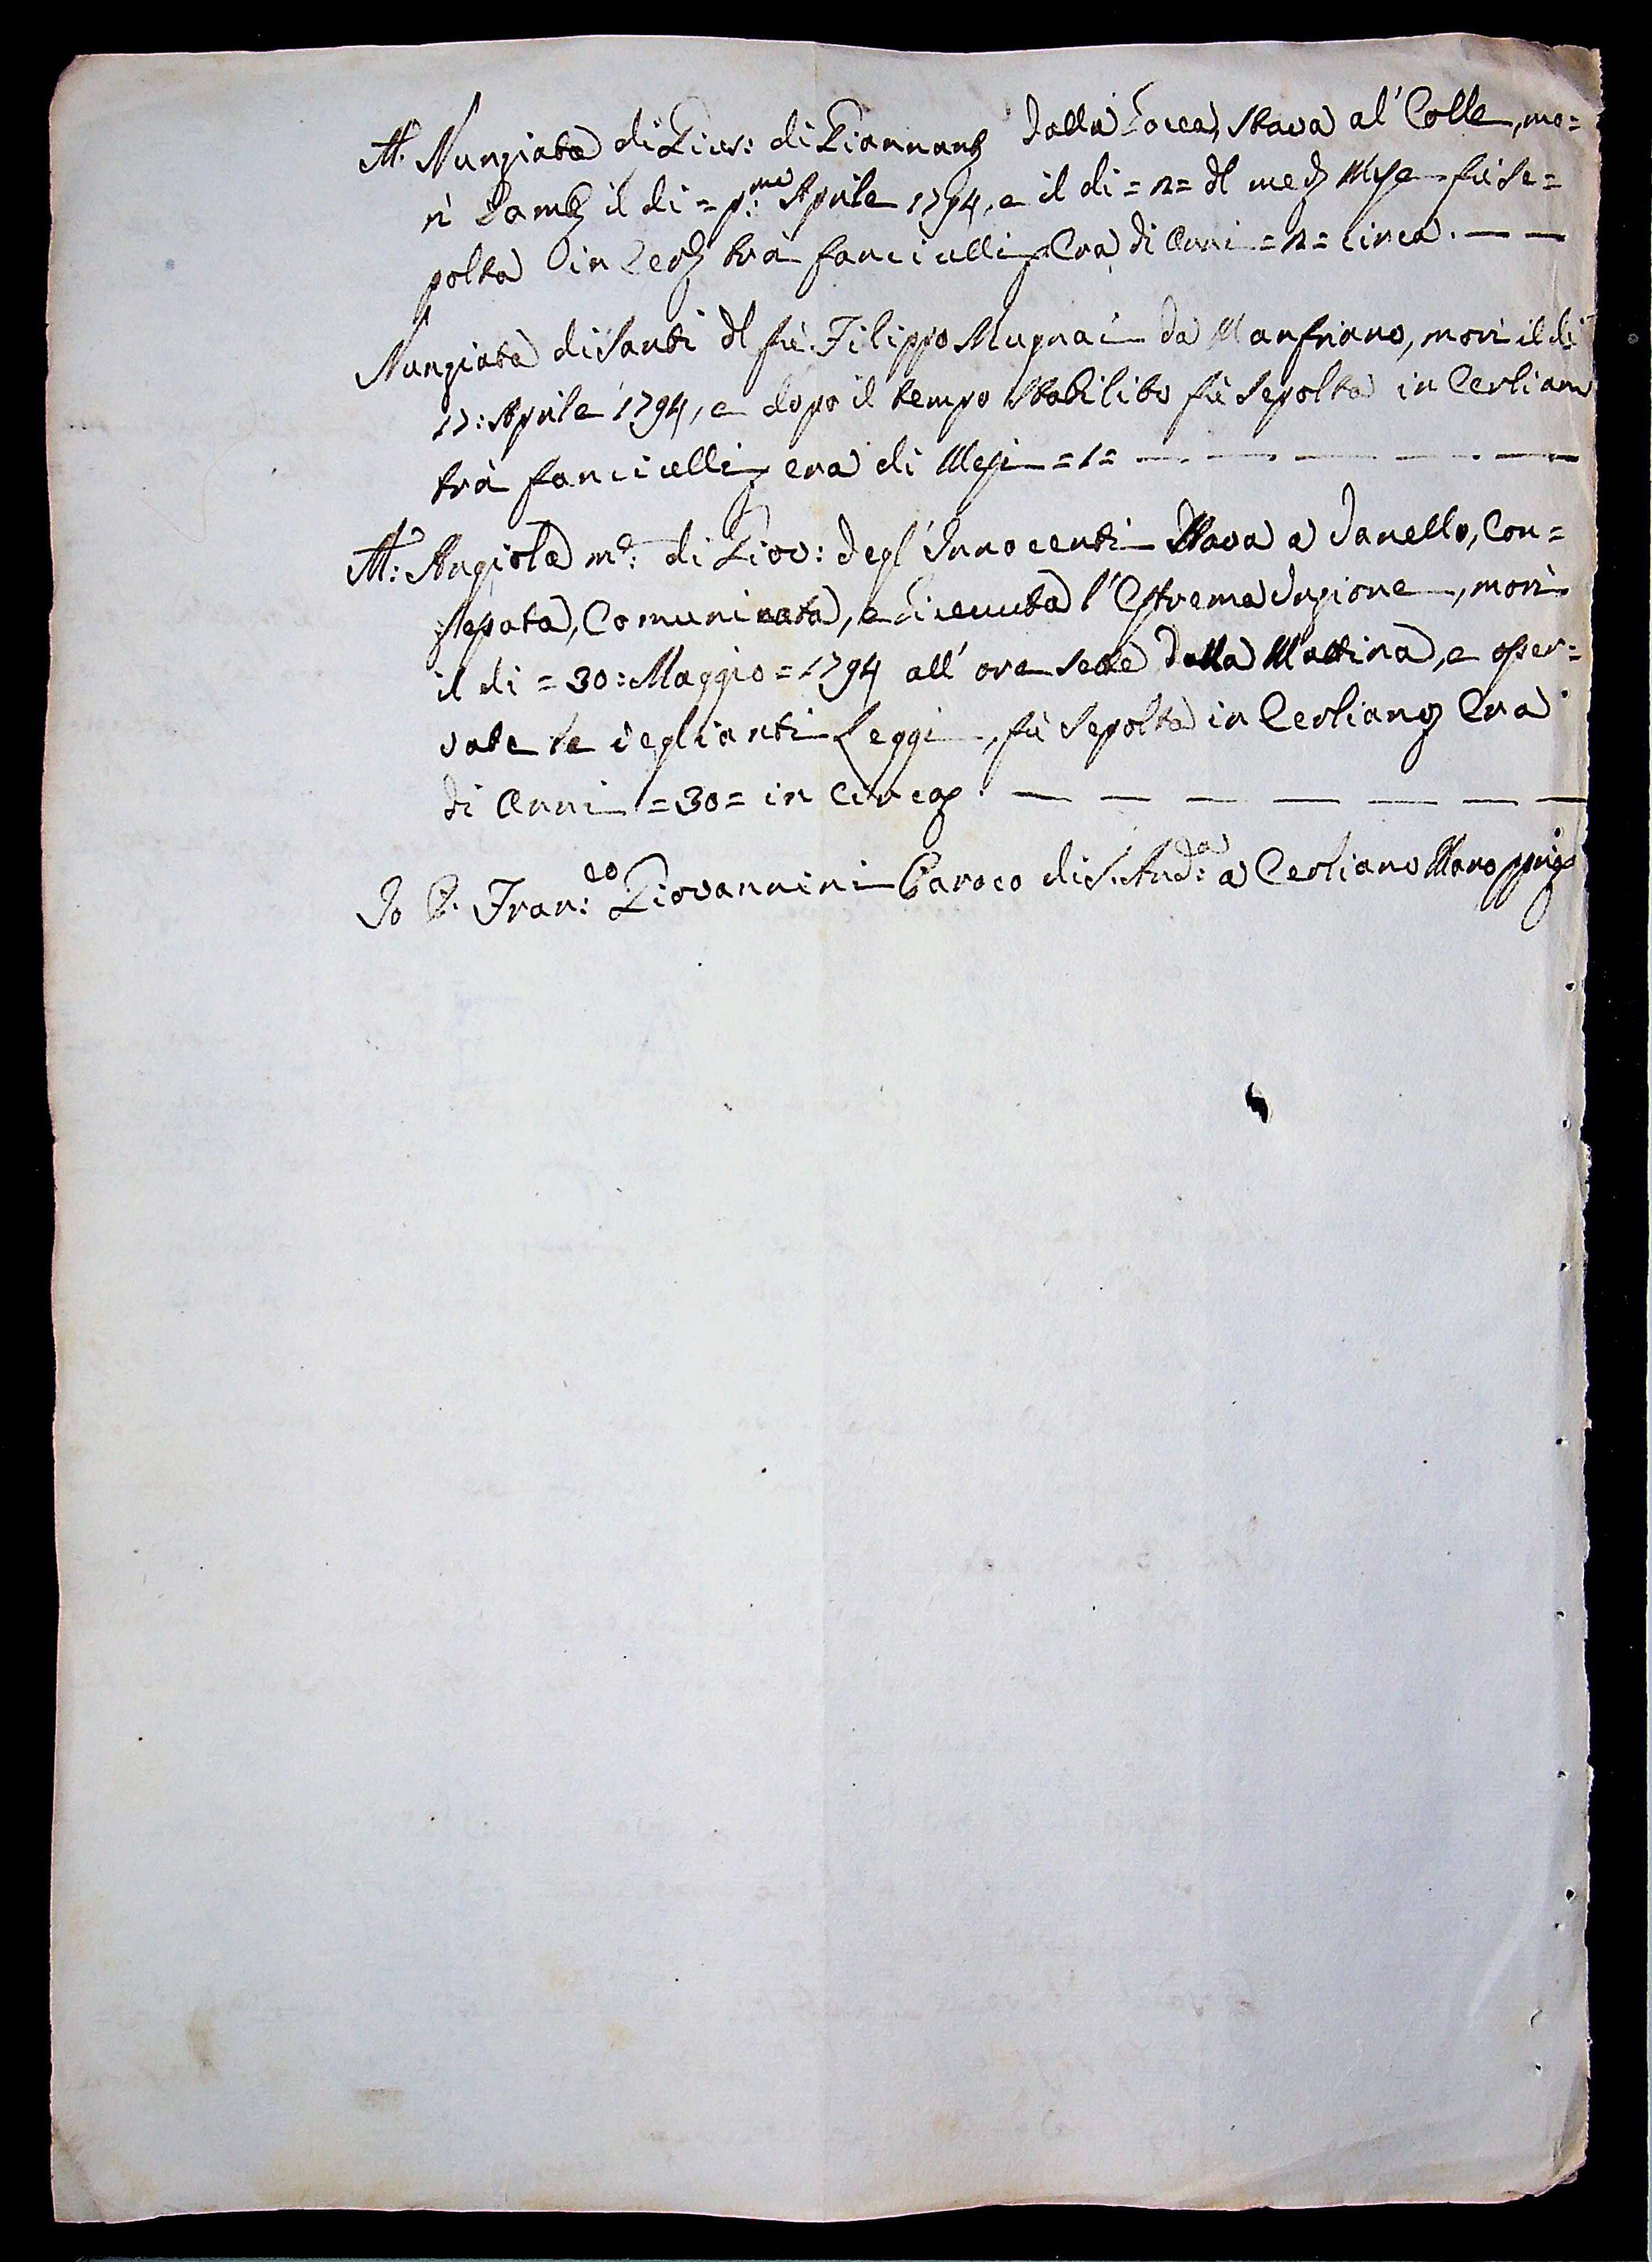 M. Nunziata di Giov: di Giannant Dalla Rocca, stava al' Colle, mo=
rì il di = p:mo Aprile 1794, e il di = 2 = dl med Mese fù Se=
polta in tra fanciulli, Era di Anni = 2 = circa. — —
Nunziata di Santi dl fù Filippo Mugnai da Manfriano, morì il di
17: Aprile 1794, e dopo il tempo stabilito fù Sepolta in Certiano
tra fanciulli, era di Mesi = 1 = — — — — — —
M: Angiola m.e di Giov: degl' Innocenti stava a Janello, Con=
fessata, Comunicata, e Ricevuta l' Estrema Unzione, morì
il di = 30: Maggio = 1794 all' ore sette della Mattina, e osser=
vate le veglianti Leggi, fù Sepolta in Certiano Era
di Anni = 30 = in circa. — — — — — — —
Io P. Fran:co Giovannini Paroco di S. And:a a Certiano Mano ppria